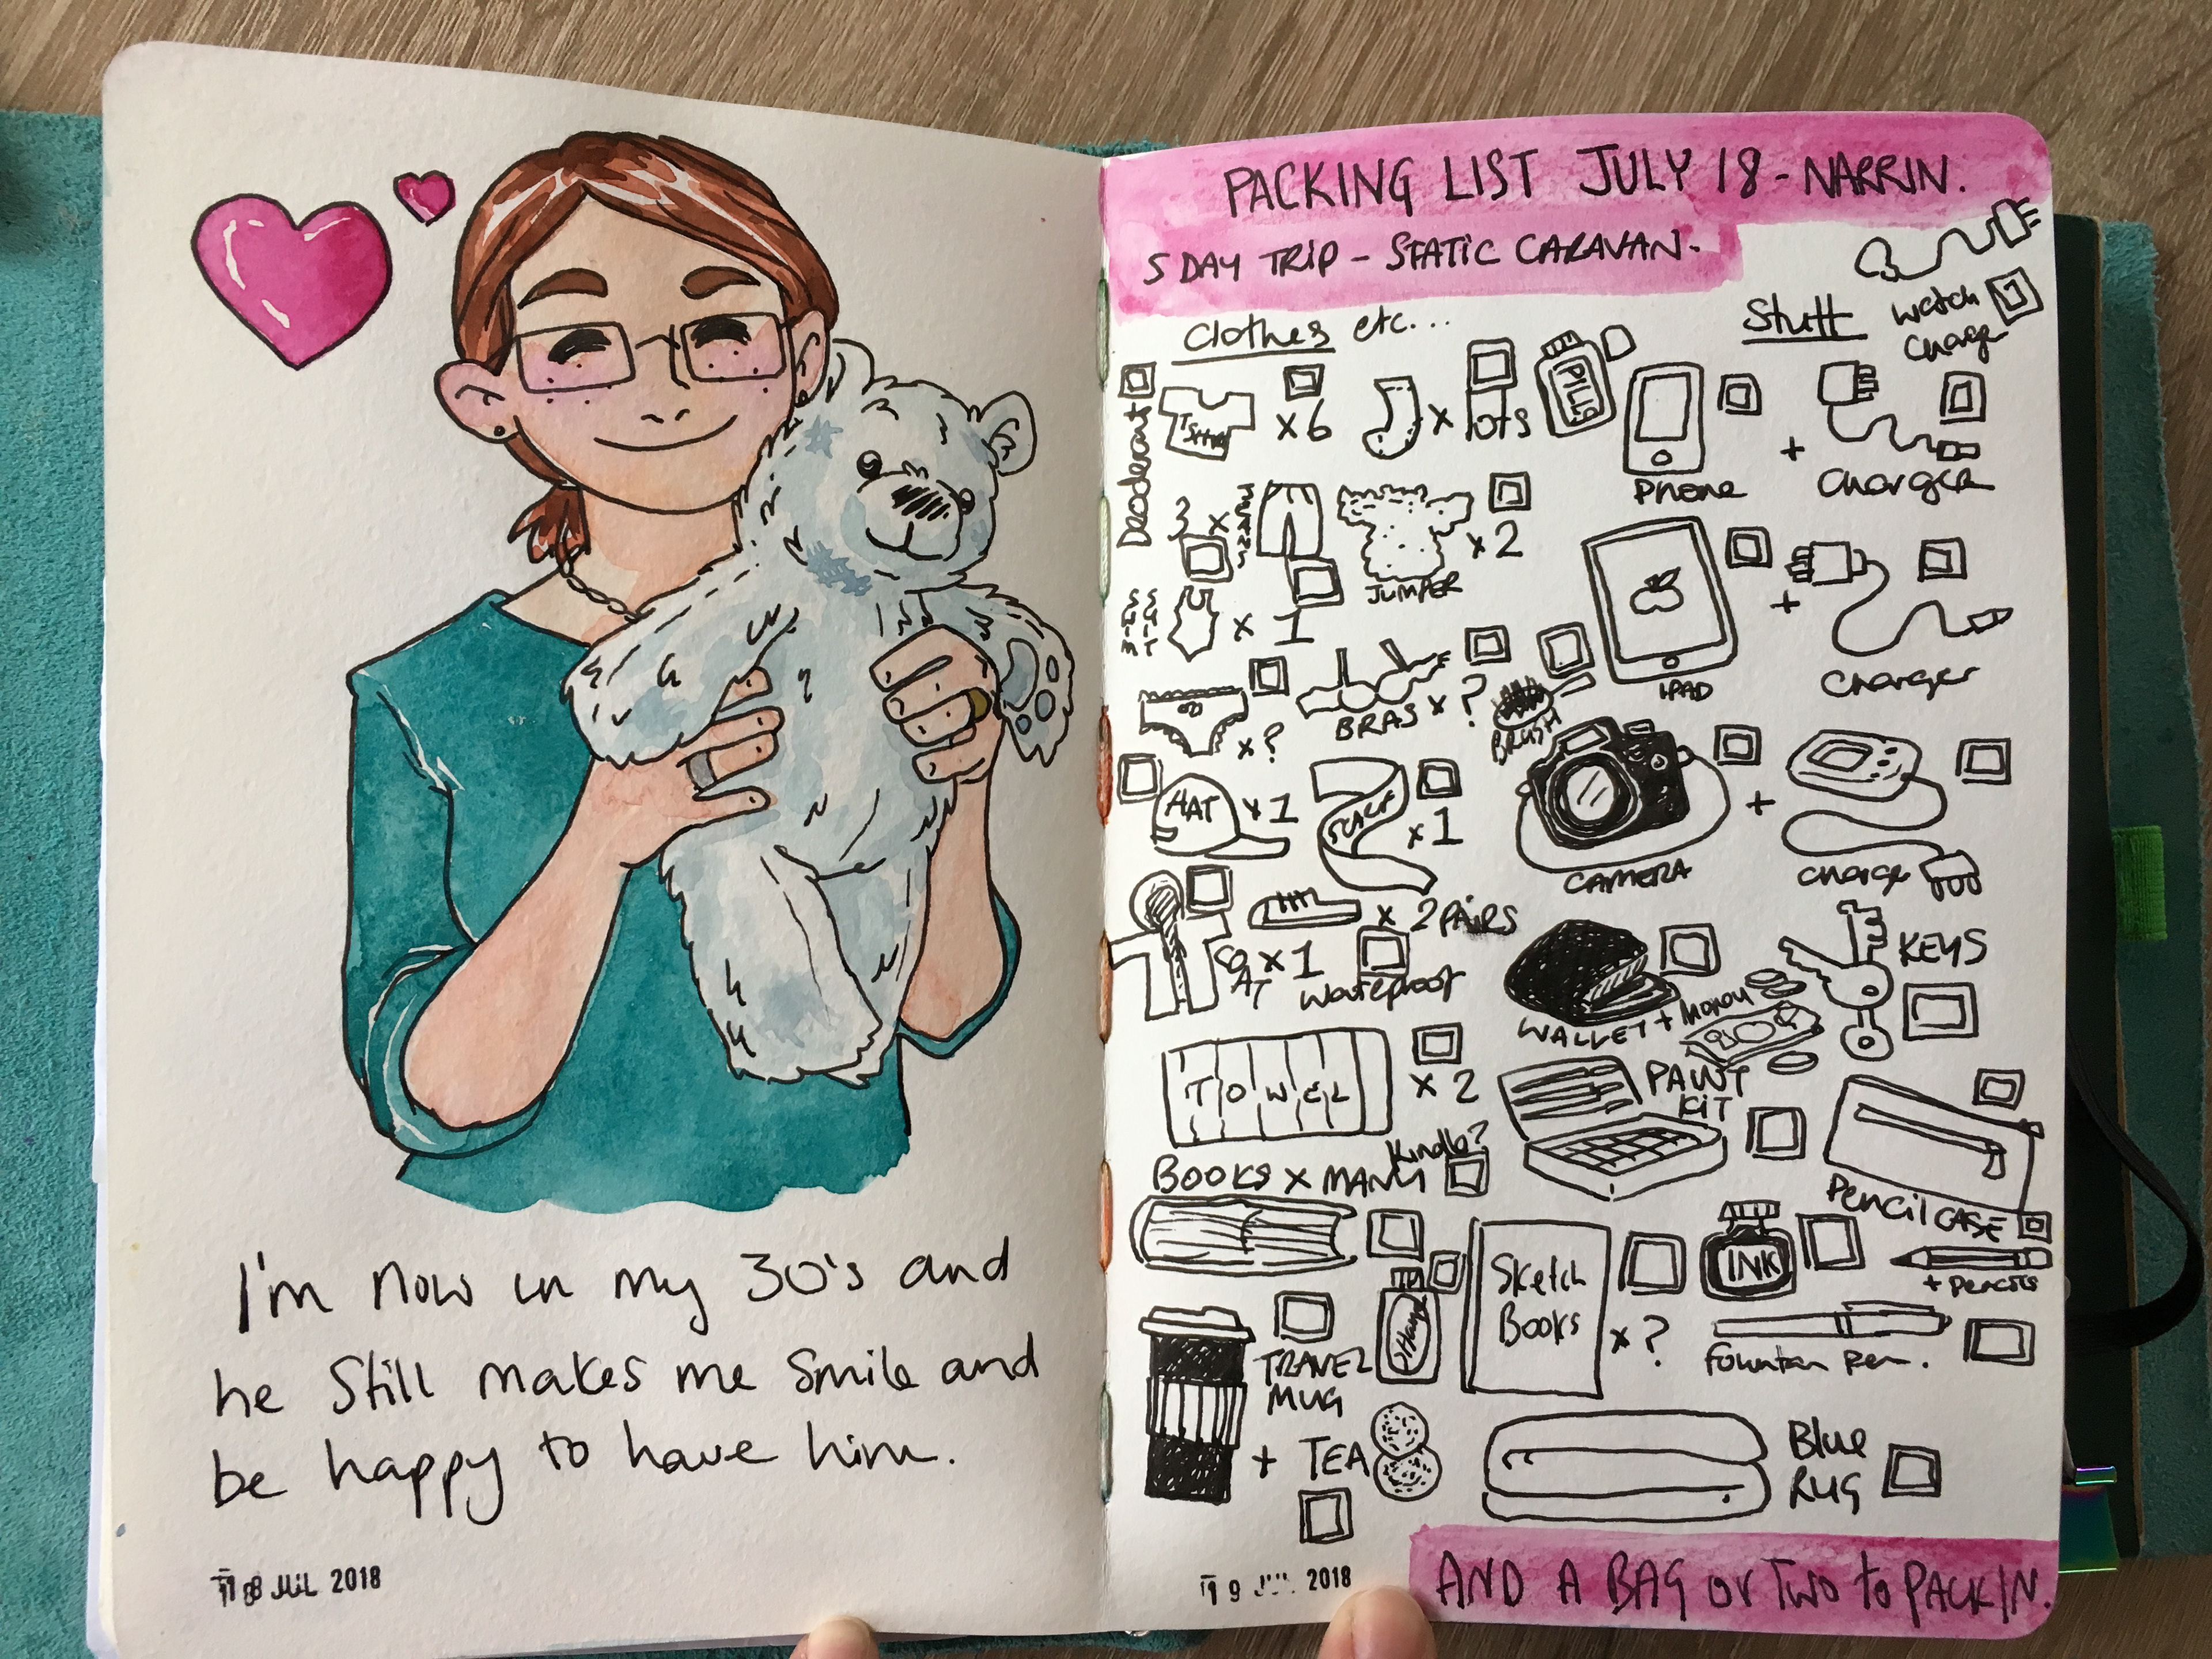 I'm now in my 30's and
he still makes me smile and
be happy to have him.
18 JUL 2018
PACKING LIST JULY 18 - NARRIN.
5 DAY TRIP - STATIC CARAVAN -
Clothes etc...
Stuff
watch
charge
Deoderant
Tshirt
x6
x lots
PILLS
Phone
+
Charger
3 x
x2
JUMPER
IPAD
+
Charger
SWIM
SUIT
x 1
x?
BRAS x ?
BRUSH
HAT
x1
SCARF
x1
CAMERA
+
charge
COAT x1
waterproof
x 2 PAIRS
WALLET + money
KEYS
TOWEL
x 2
PAINT
KIT
Pencil CASE
+ pencils
BOOKS x MANY
Kindle?
Sketch
Books
x ?
INK
fountain pen.
TRAVEL
MUG
+ TEA
Blue
RUG
19 2018
AND A BAG or Two to PACK IN.